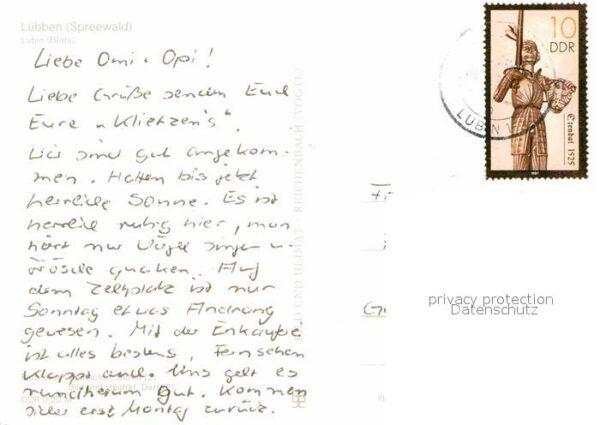 Lübben (Spreewald)
Lubin (Błota)
Liebe Omi + Opi!
Liebe Grüße senden Euch
Eure "Klietzen's".
Wir sind gut angekom-
men. Hatten bis jetzt
herrliche Sonne. Es ist
herrlich ruhig hier, man
hört nur Vögel singen u.
Frösche quaken. Auf
dem Zeltplatz ist nur
Sonntag etwas Andrang
gewesen. Mit der Einkauferei
ist alles bestens, Fernsehen
klappt auch. Uns geht es
rundherum gut. Kommen
sicher erst Montag zurück.
BILD UND HEIMAT REICHENBACH (VOGTL)
10
DDR
Ezenbal 1525
LUBIN 1
privacy protection
Datenschutz